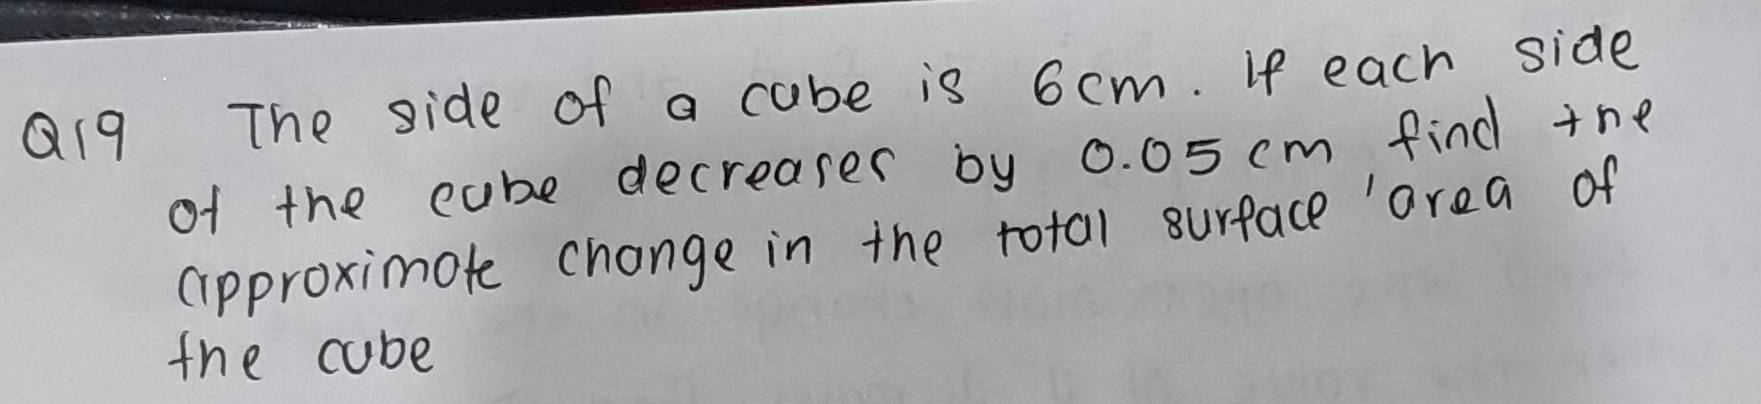 Q19 The side of a cube is 6cm. If each side
of the cube decreases by 0.05 cm find the
approximate change in the total surface area of
the cube